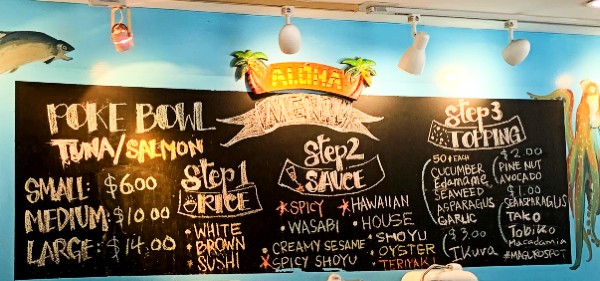 ALOHA
MENU
POKE BOWL
TUNA/SALMON
SMALL: $6.00
MEDIUM: $10.00
LARGE: $14.00
Step 1
RICE
• WHITE
• BROWN
* SUSHI
Step 2
SAUCE
* SPICY
• WASABI
• CREAMY SESAME
* SPICY SHOYU
* HAWAIIAN
• HOUSE
• SHOYU
• OYSTER
TERIYAKI
Step 3
TOPPING
50¢ EACH
CUCUMBER
Edamame
SEAWEED
ASPARAGUS
GARLIC
$3.00
Ikura
$2.00
PINE NUT
AVOCADO
$1.00
SEASPARAGUS
TAKO
Tobiko
Macadamia
#MAGUROSPOT